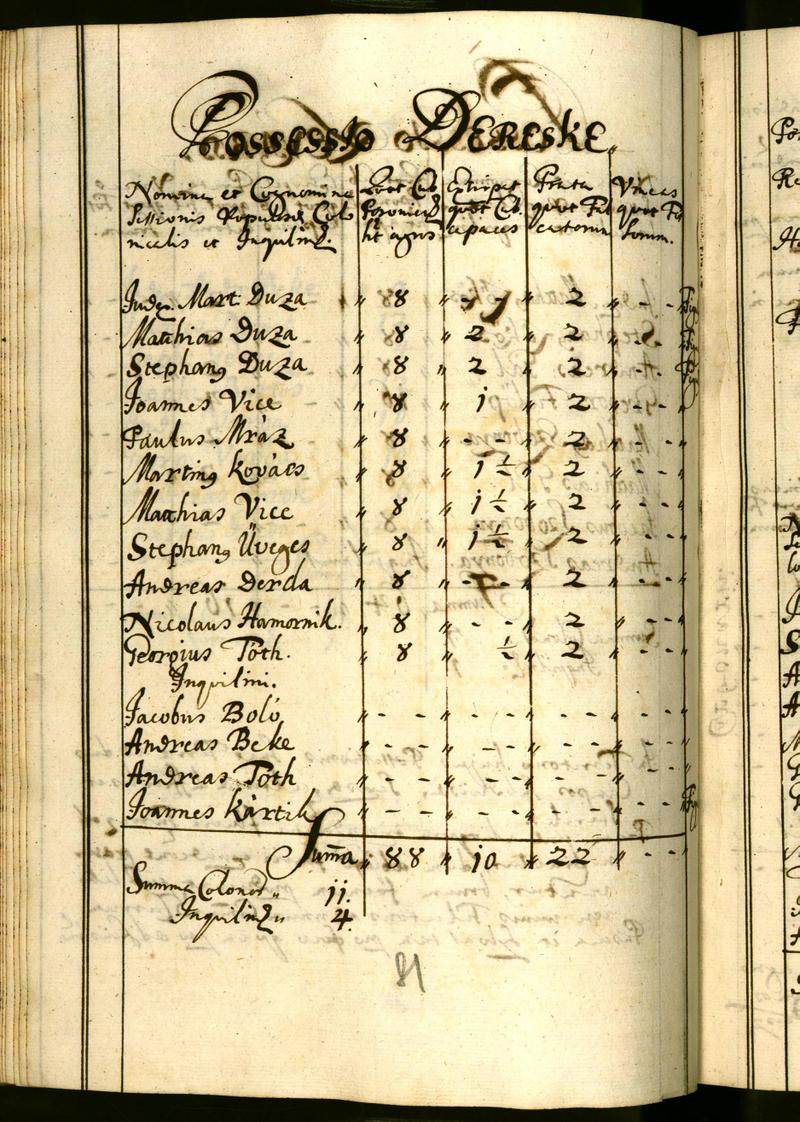 Possessio Dereske
Nomina et Cognomina
Sessionis Populosæ Colo
nicalis et Inquilinor.
Quot Cub.
Posonien.
ht agros
Extirpat
quot Cub.
capaces
Prata
quot Fal
catorum
Vineas
quot Fo
ssorum.
Judex Mart Duza 〃 8 〃 - - 〃 2 〃 - - 〃
Matthias Duza 〃 8 〃 2 〃 2 〃 - - 〃
Stephanus Duza 〃 8 〃 2 〃 2 〃 - - 〃
Joannes Vice 〃 8 〃 1 〃 2 〃 - - 〃
Paulus Mráz 〃 8 〃 - - 〃 2 〃 - - 〃
Martinus Kovács 〃 8 〃 1 ½ 〃 2 〃 - - 〃
Matthias Vice 〃 8 〃 1 ½ 〃 2 〃 - - 〃
Stephanus Üveges 〃 8 〃 1 ½ 〃 2 〃 - - 〃
Andreas Derda 〃 8 〃 - - 〃 2 〃 - - 〃
Nicolaus Hamornik. 〃 8 〃 - - 〃 2 〃 - - 〃
Georgius Tóth. 〃 8 〃 ½ 〃 2 〃 - - 〃
Inquilini.
Jacobus Boló 〃 - - 〃 - - 〃 - - 〃 - - 〃
Andreas Beke 〃 - - 〃 - - 〃 - - 〃 - - 〃
Andreas Tóth 〃 - - 〃 - - 〃 - - 〃 - - 〃
Joannes Kártik 〃 - - 〃 - - 〃 - - 〃 - - 〃
Summa 〃 88 〃 10 〃 22 〃 - - 〃
Summa Colonor. 〃 11.
Inquilinor. 〃 4.
81